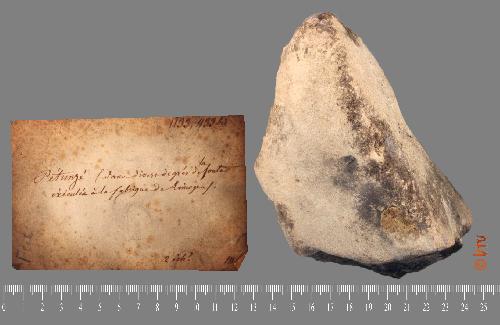 1193, 433
Pétunzé (dans divers degrés de la fonte
exécutés à la fabrique de Limoges).
2 éch.
0 1 2 3 4 5 6 7 8 9 10 11 12 13 14 15 16 17 18 19 20 21 22 23 24 25